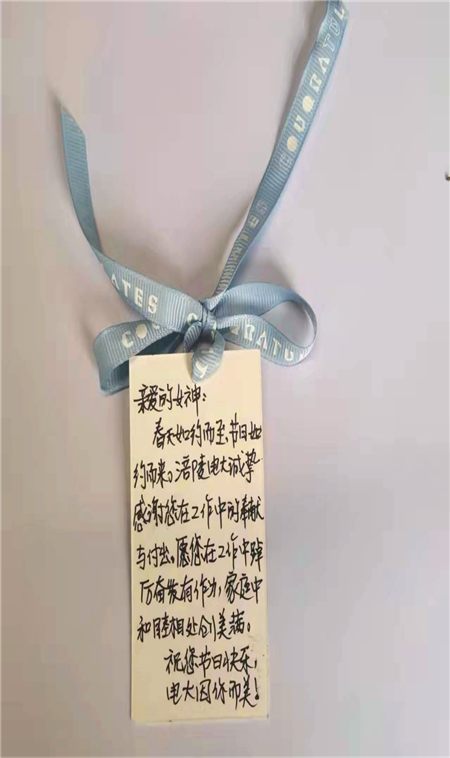 亲爱的女神：
春天如约而至，节日如
约而来。涪陵电大诚挚
感谢您在工作中的奉献
与付出。愿您在工作中踔
厉奋发有作为，家庭中
和睦相处创美满。
祝您节日快乐，
电大因你而美！
ATES
CON
GRATUL